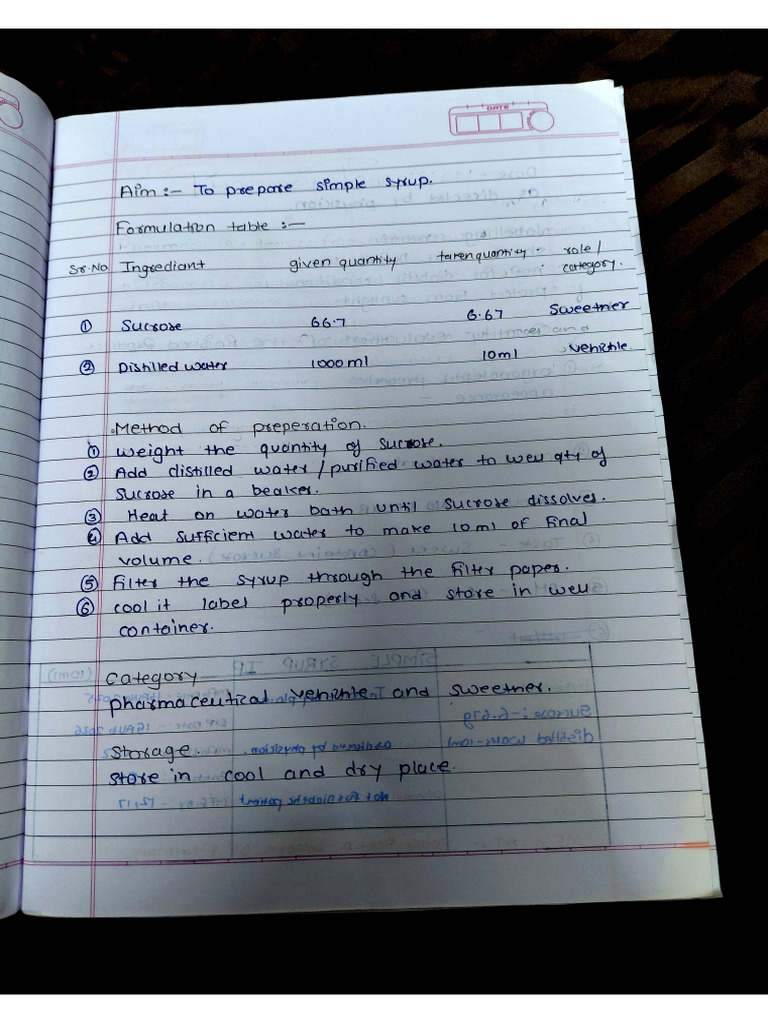 DATE
Aim :- To prepare simple syrup.
Formulation table :-
Sr.No Ingrediant given quantity taken quantity role / category.
① Sucrose 66.7 6.67 Sweetner
② Distilled water 1000 ml 10ml vehichle
Method of preperation.
① weight the quantity of sucrose.
② Add distilled water / purified water to well qty of
sucrose in a beaker.
③ Heat on water bath until sucrose dissolves.
④ Add sufficient water to make 10 ml of final
volume.
⑤ Filter the syrup through the filter paper.
⑥ cool it label properly and store in well
container.
Category
pharmaceutical vehichle and sweetner.
Storage.
Store in cool and dry place.